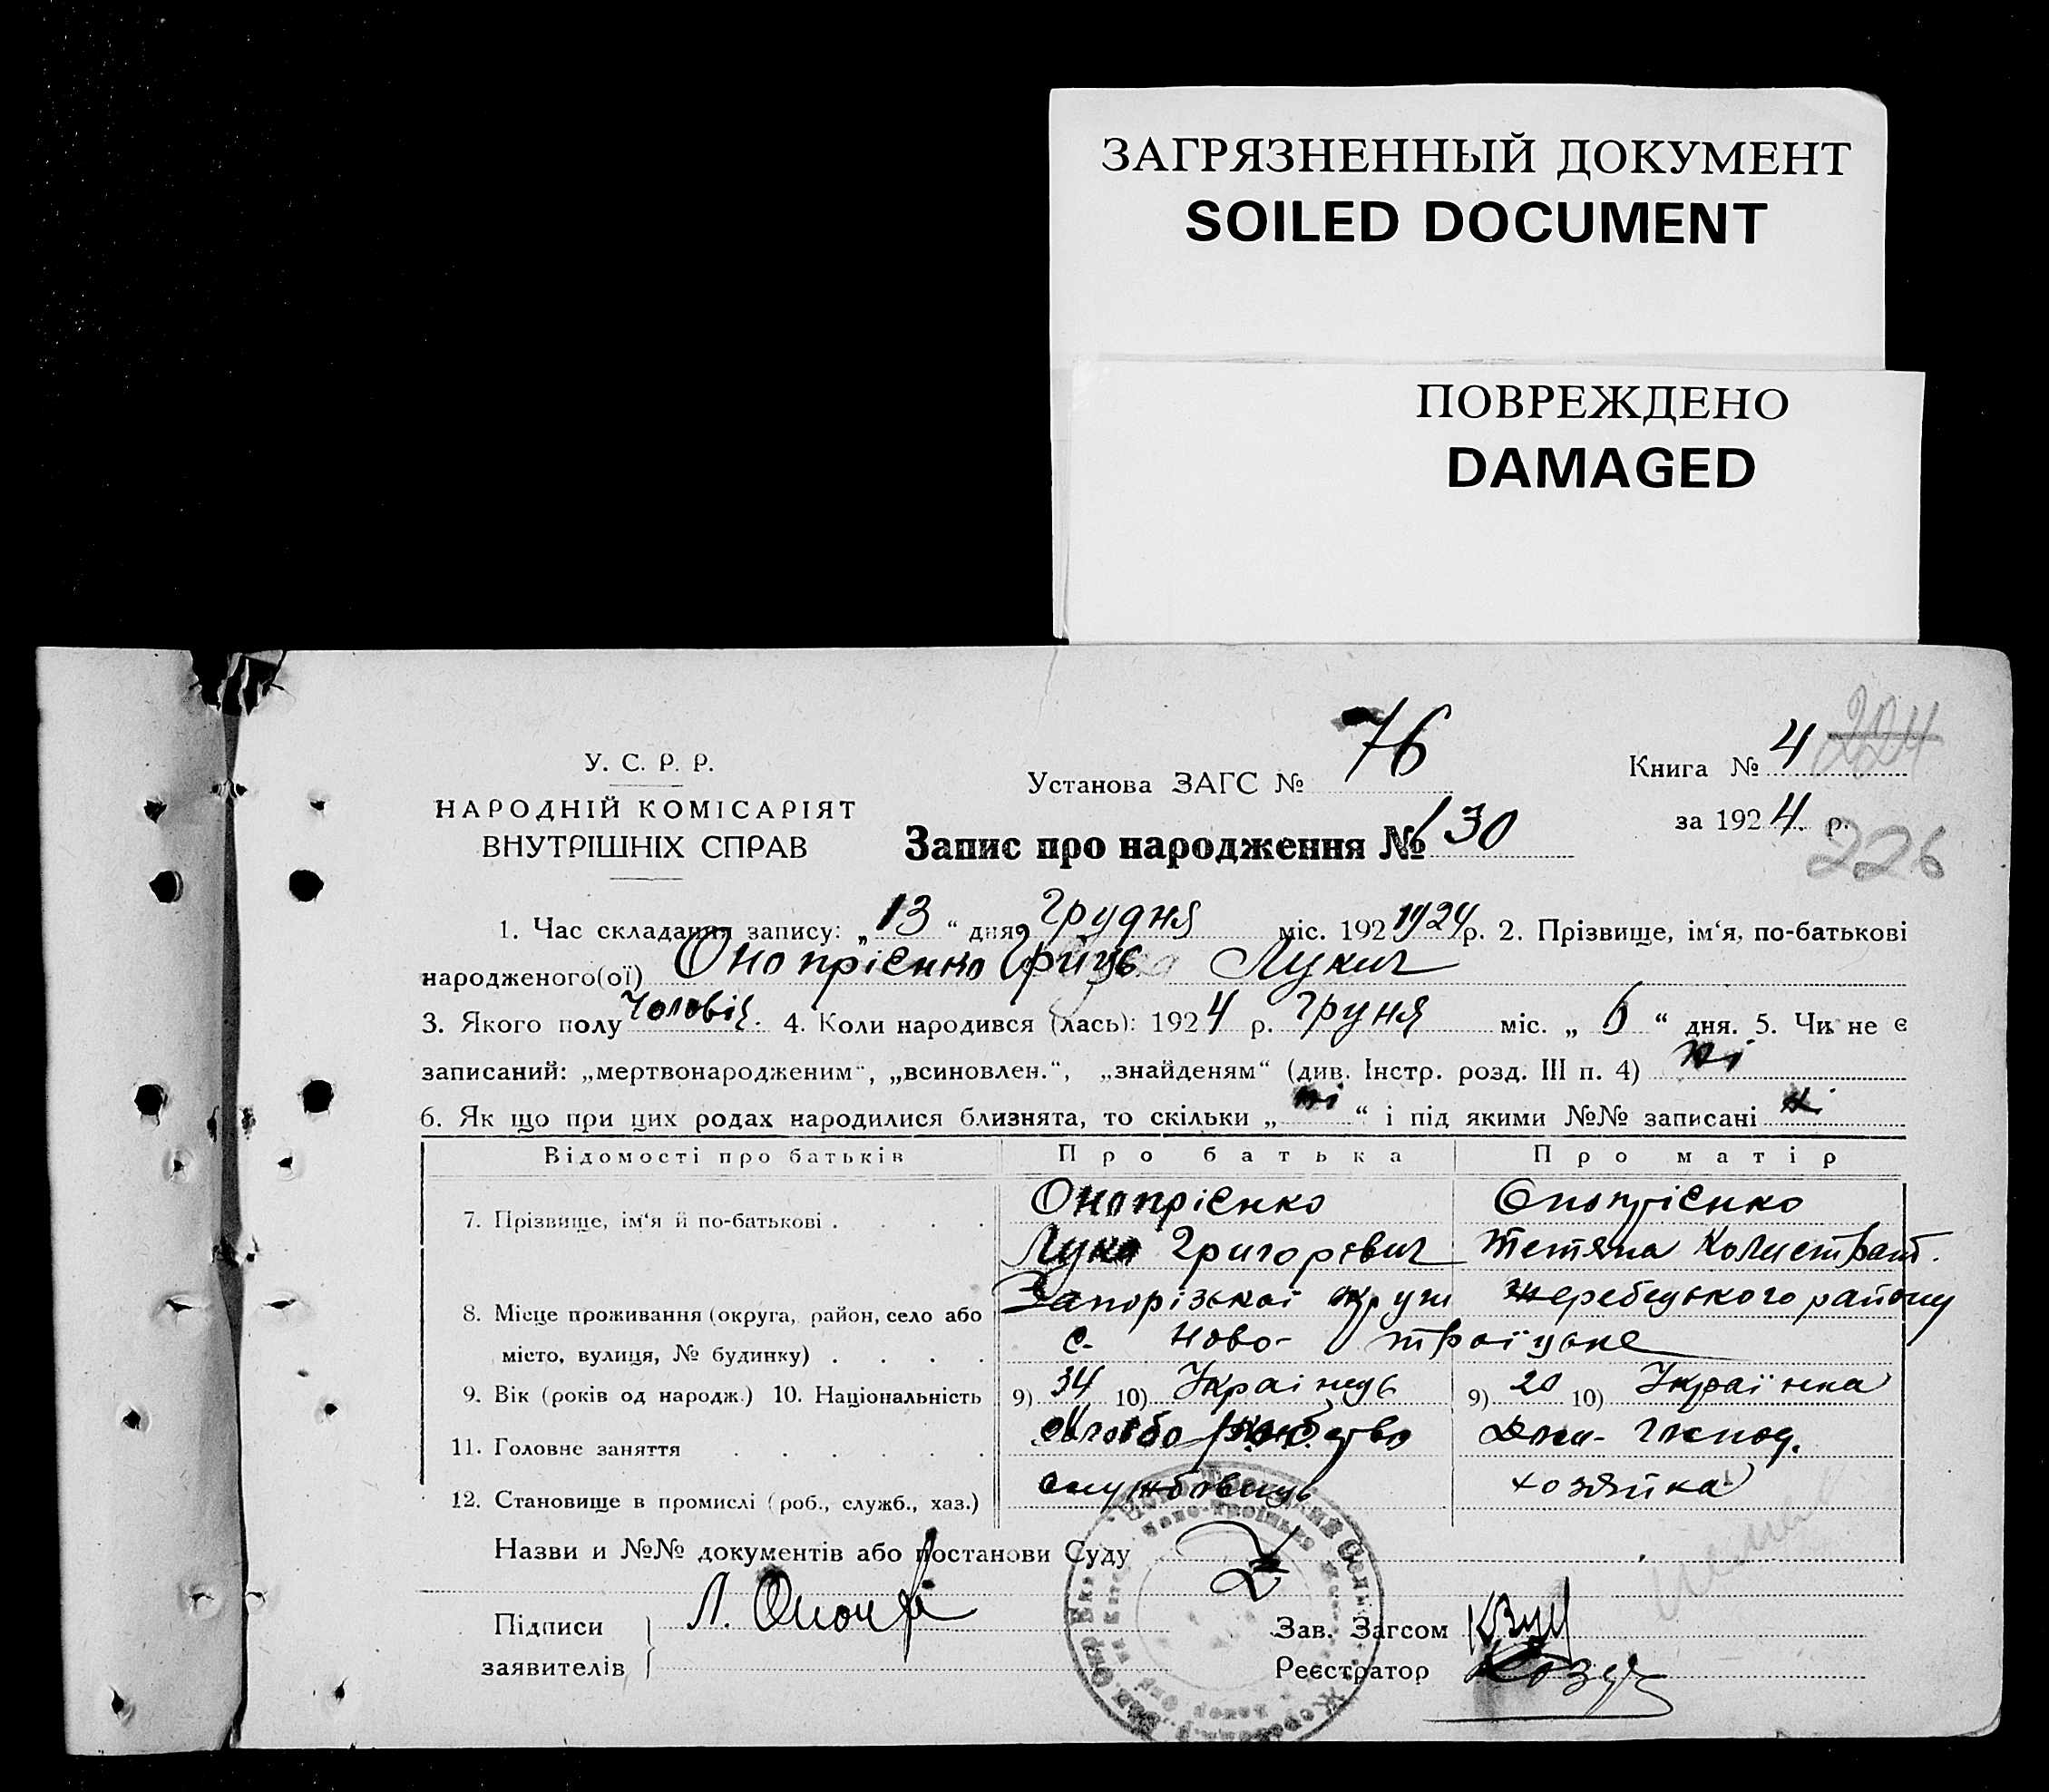 ЗАГРЯЗНЕННЫЙ ДОКУМЕНТ
SOILED DOCUMENT
ПОВРЕЖДЕНО
DAMAGED
224
У. С. Р. Р.
НАРОДНІЙ КОМІСАРІЯТ
ВНУТРІШНІХ СПРАВ
Установа ЗАГС № 76
Книга № 4
за 1924. р.
Запис про народження № 130
226
1. Час складання запису: „13“ дня Грудня міс. 192 1924 р. 2. Прізвище, ім‘я, по-батькові
народженого(ої) Онопрієнко Гриць Лукич
3. Якого полу Чоловіч. 4. Коли народився (лась): 1924 р. Груня міс. „6“ дня. 5. Чи не є
записаний: „мертвонародженим“, „всиновлен.“, „знайденям“ (див. Інстр. розд. III п. 4) ні
6. Як що при цих родах народилися близнята, то скільки „ні“ і під якими №№ записані ні
Відомості про батьків Про батька Про матір
7. Прізвище, ім‘я й по-батькові . . . . Онопрієнко Онопрієнко
Лука Григорович Тетяна
8. Місце проживання (округа, район, село або Запорізькоі округи Жеребецького району
місто, вулиця, № будинку) . . . . с. Ново-троїцьке
9. Вік (років од народж.) 10. Національність 9) 34 10) Украінець 9) 20 10) Українка
11. Головне заняття . . . . . . Дом- Господ.
12. Становище в промислі (роб., служб., хаз.) службовець хозяйка
Назви и №№ документів або постанови Суду
Підписи
заявителів
Л.
Зав. Загсом
Реєстратор